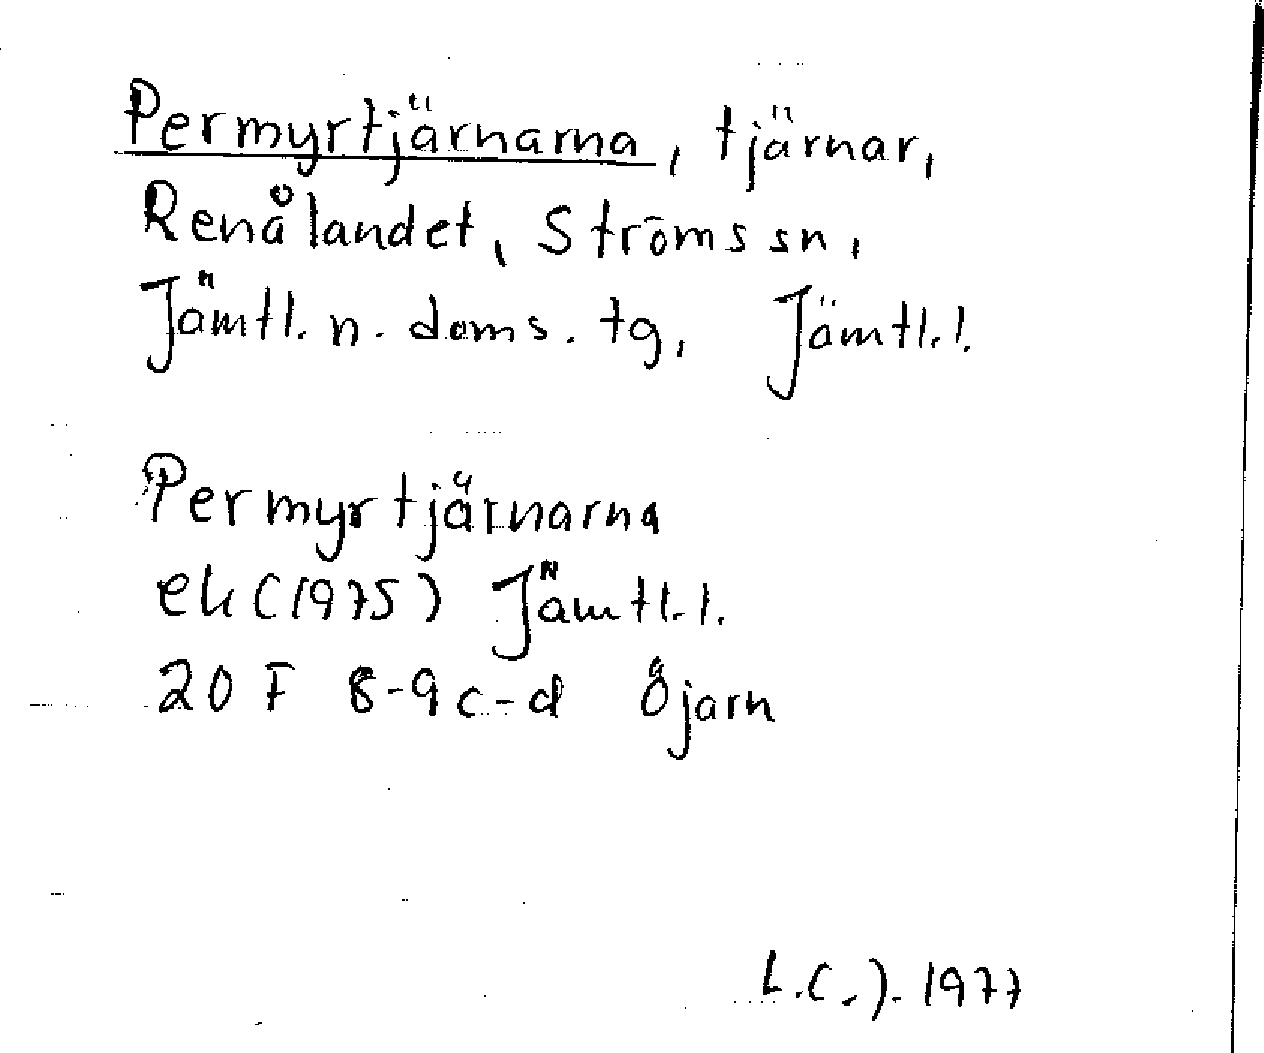 Permyrtjärnarna, tjärnar,
Renålandet, Ströms sn,
Jämtl. n. doms. tg, Jämtl. l.
Permyrtjärnarna
ek (1975) Jämtl. l.
20 F 8-9 c-d Öjarn
L.C.J. 1977